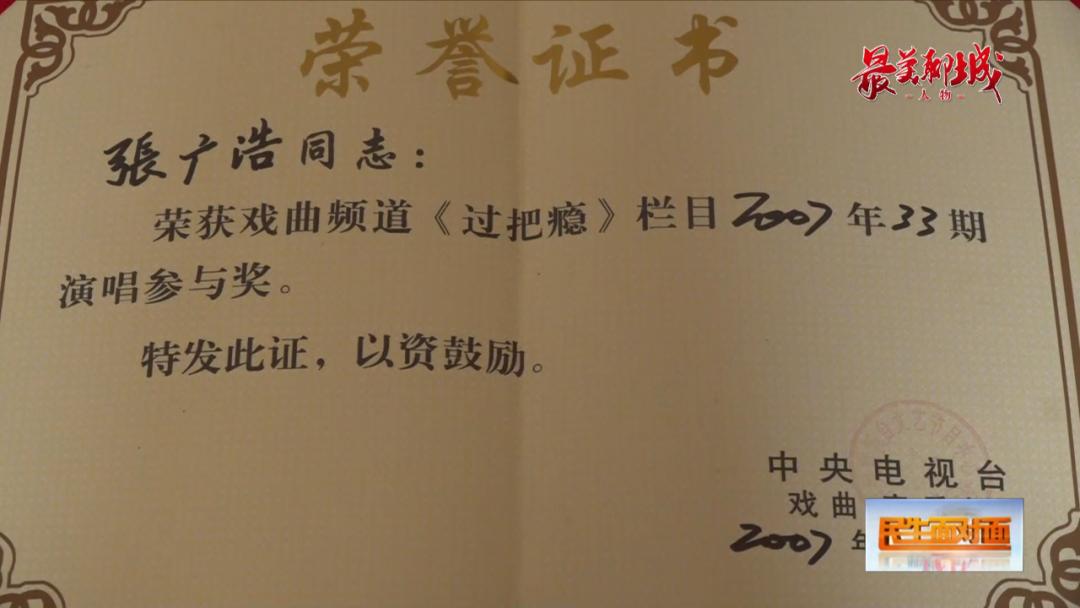 荣誉证书
最美聊城
人物
張广浩同志：
荣获戏曲频道《过把瘾》栏目2007年33期
演唱参与奖。
特发此证，以资鼓励。
中央电视台
戏曲
2007年
民生面对面